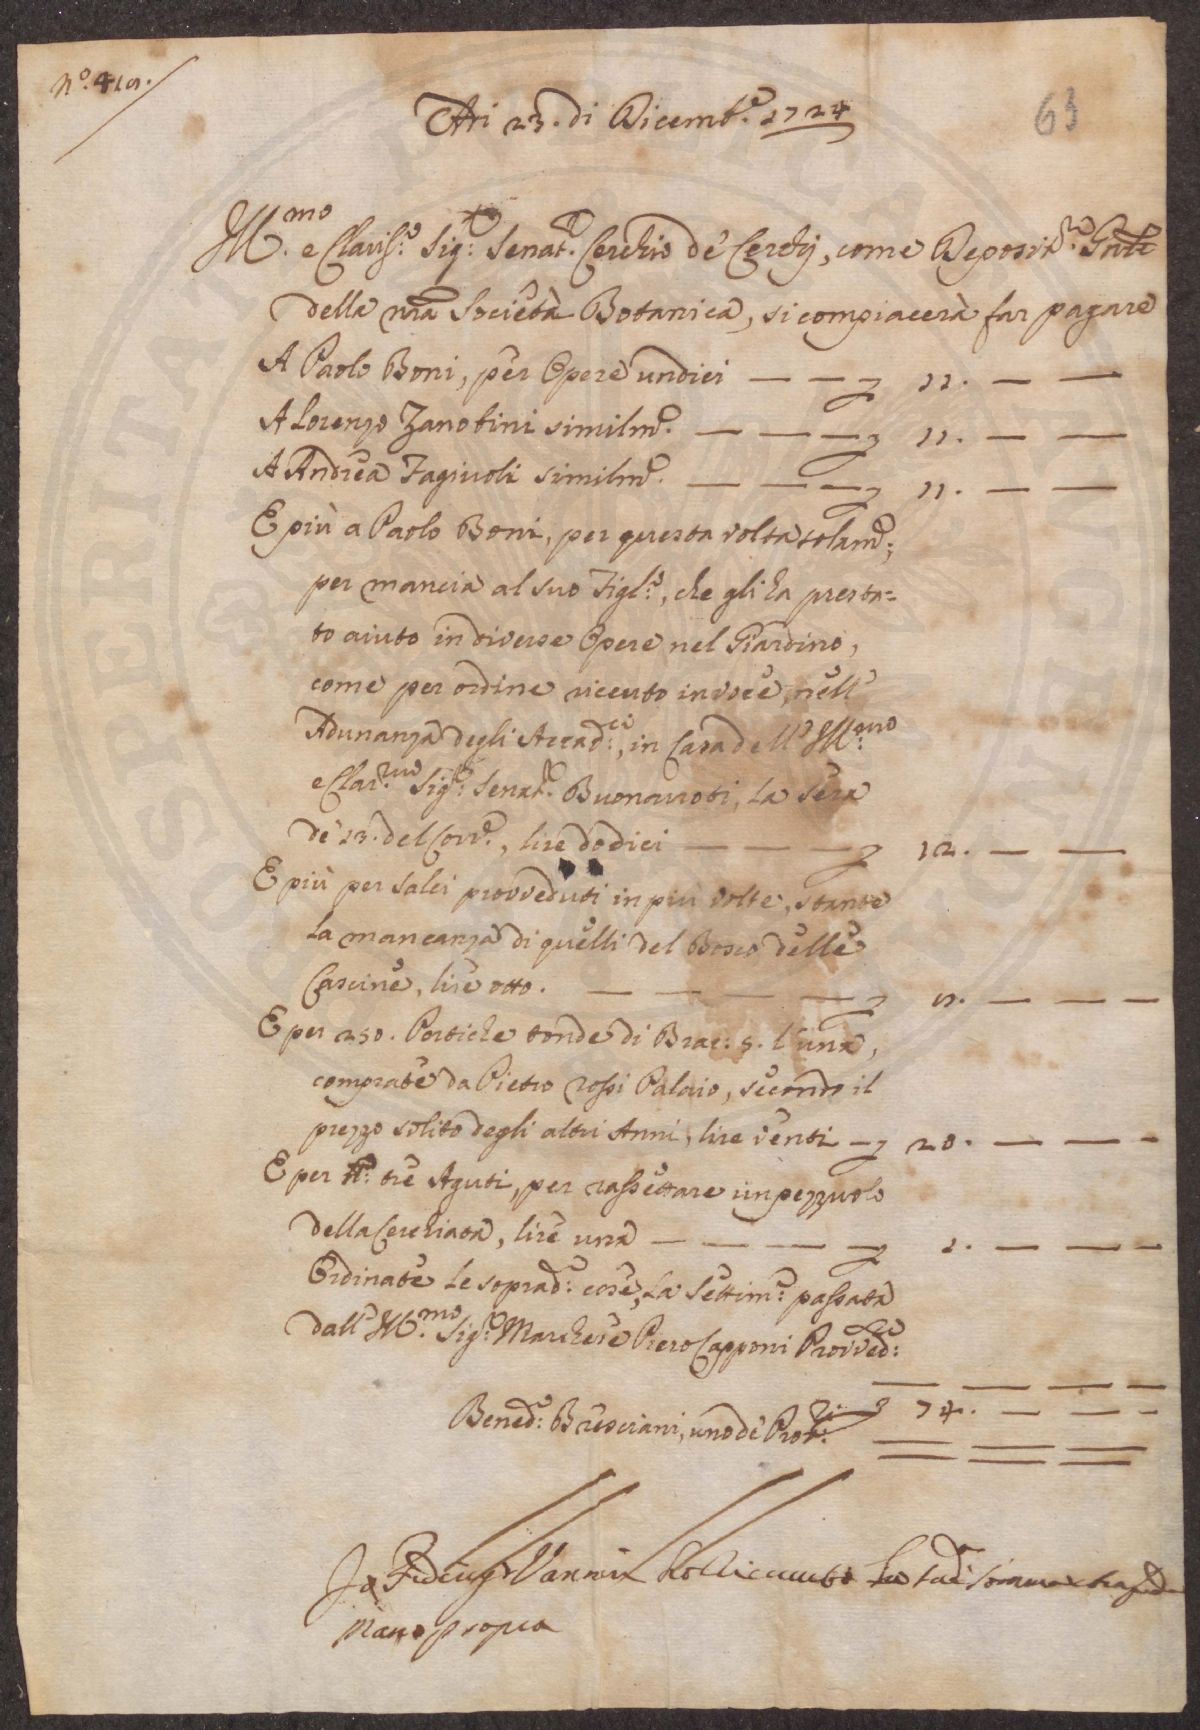 N.º 419.
63
Adi 23. di Dicemb.e 1724
Ill.mo e Clariss.o Sig.r Senat.e Cerchio de' Cerchj, come Deposit.rio Gnle
della nra Società Botanica, si compiacerà far pagare
A Paolo Boni, per Opere undici — — — 11. — —
A Lorenzo Zanobini similmte. — — — 11. — —
A Andrea Fagiuoli similmte. — — — 11. — —
E più a Paolo Boni, per questa volta solamte.,
per mancia al suo Figl.o, che gli ha presta=
to aiuto in diverse Opere nel Giardino,
come per ordine riceuto in voce, nell'
Adunanza degli Accad.ci, in Casa dell'Ill.mo
e Clar.mo Sig.r Senat.e Buonarroti, la sera
de' 13. del Corr.e, lire dodici — — — 12. — —
E più per Salci provveduti in più volte, stante
la mancanza di quelli del Bosco delle
Cascine, lire otto. — — — — 8. — — —
E per 250. Pertiche tonde di Brac: 5. l'una,
comprate da Pietro rossi Palaio, secondo il
prezzo solito degli altri Anni, lire venti — 20. — — —
E per tre Aguti, per rassettare un pezzuolo
della Cerchiata, lire una — — — — 1. — — —
Ordinate le soprad.e cose, la Settim.a passata
dall'Ill.mo Sig.r Marchese Piero Capponi Provved.re
Bened.o Bresciani, uno de' Prov.ri 74. — — —
Io Vannini ho riceuuto la sud.a somma
Mano propria